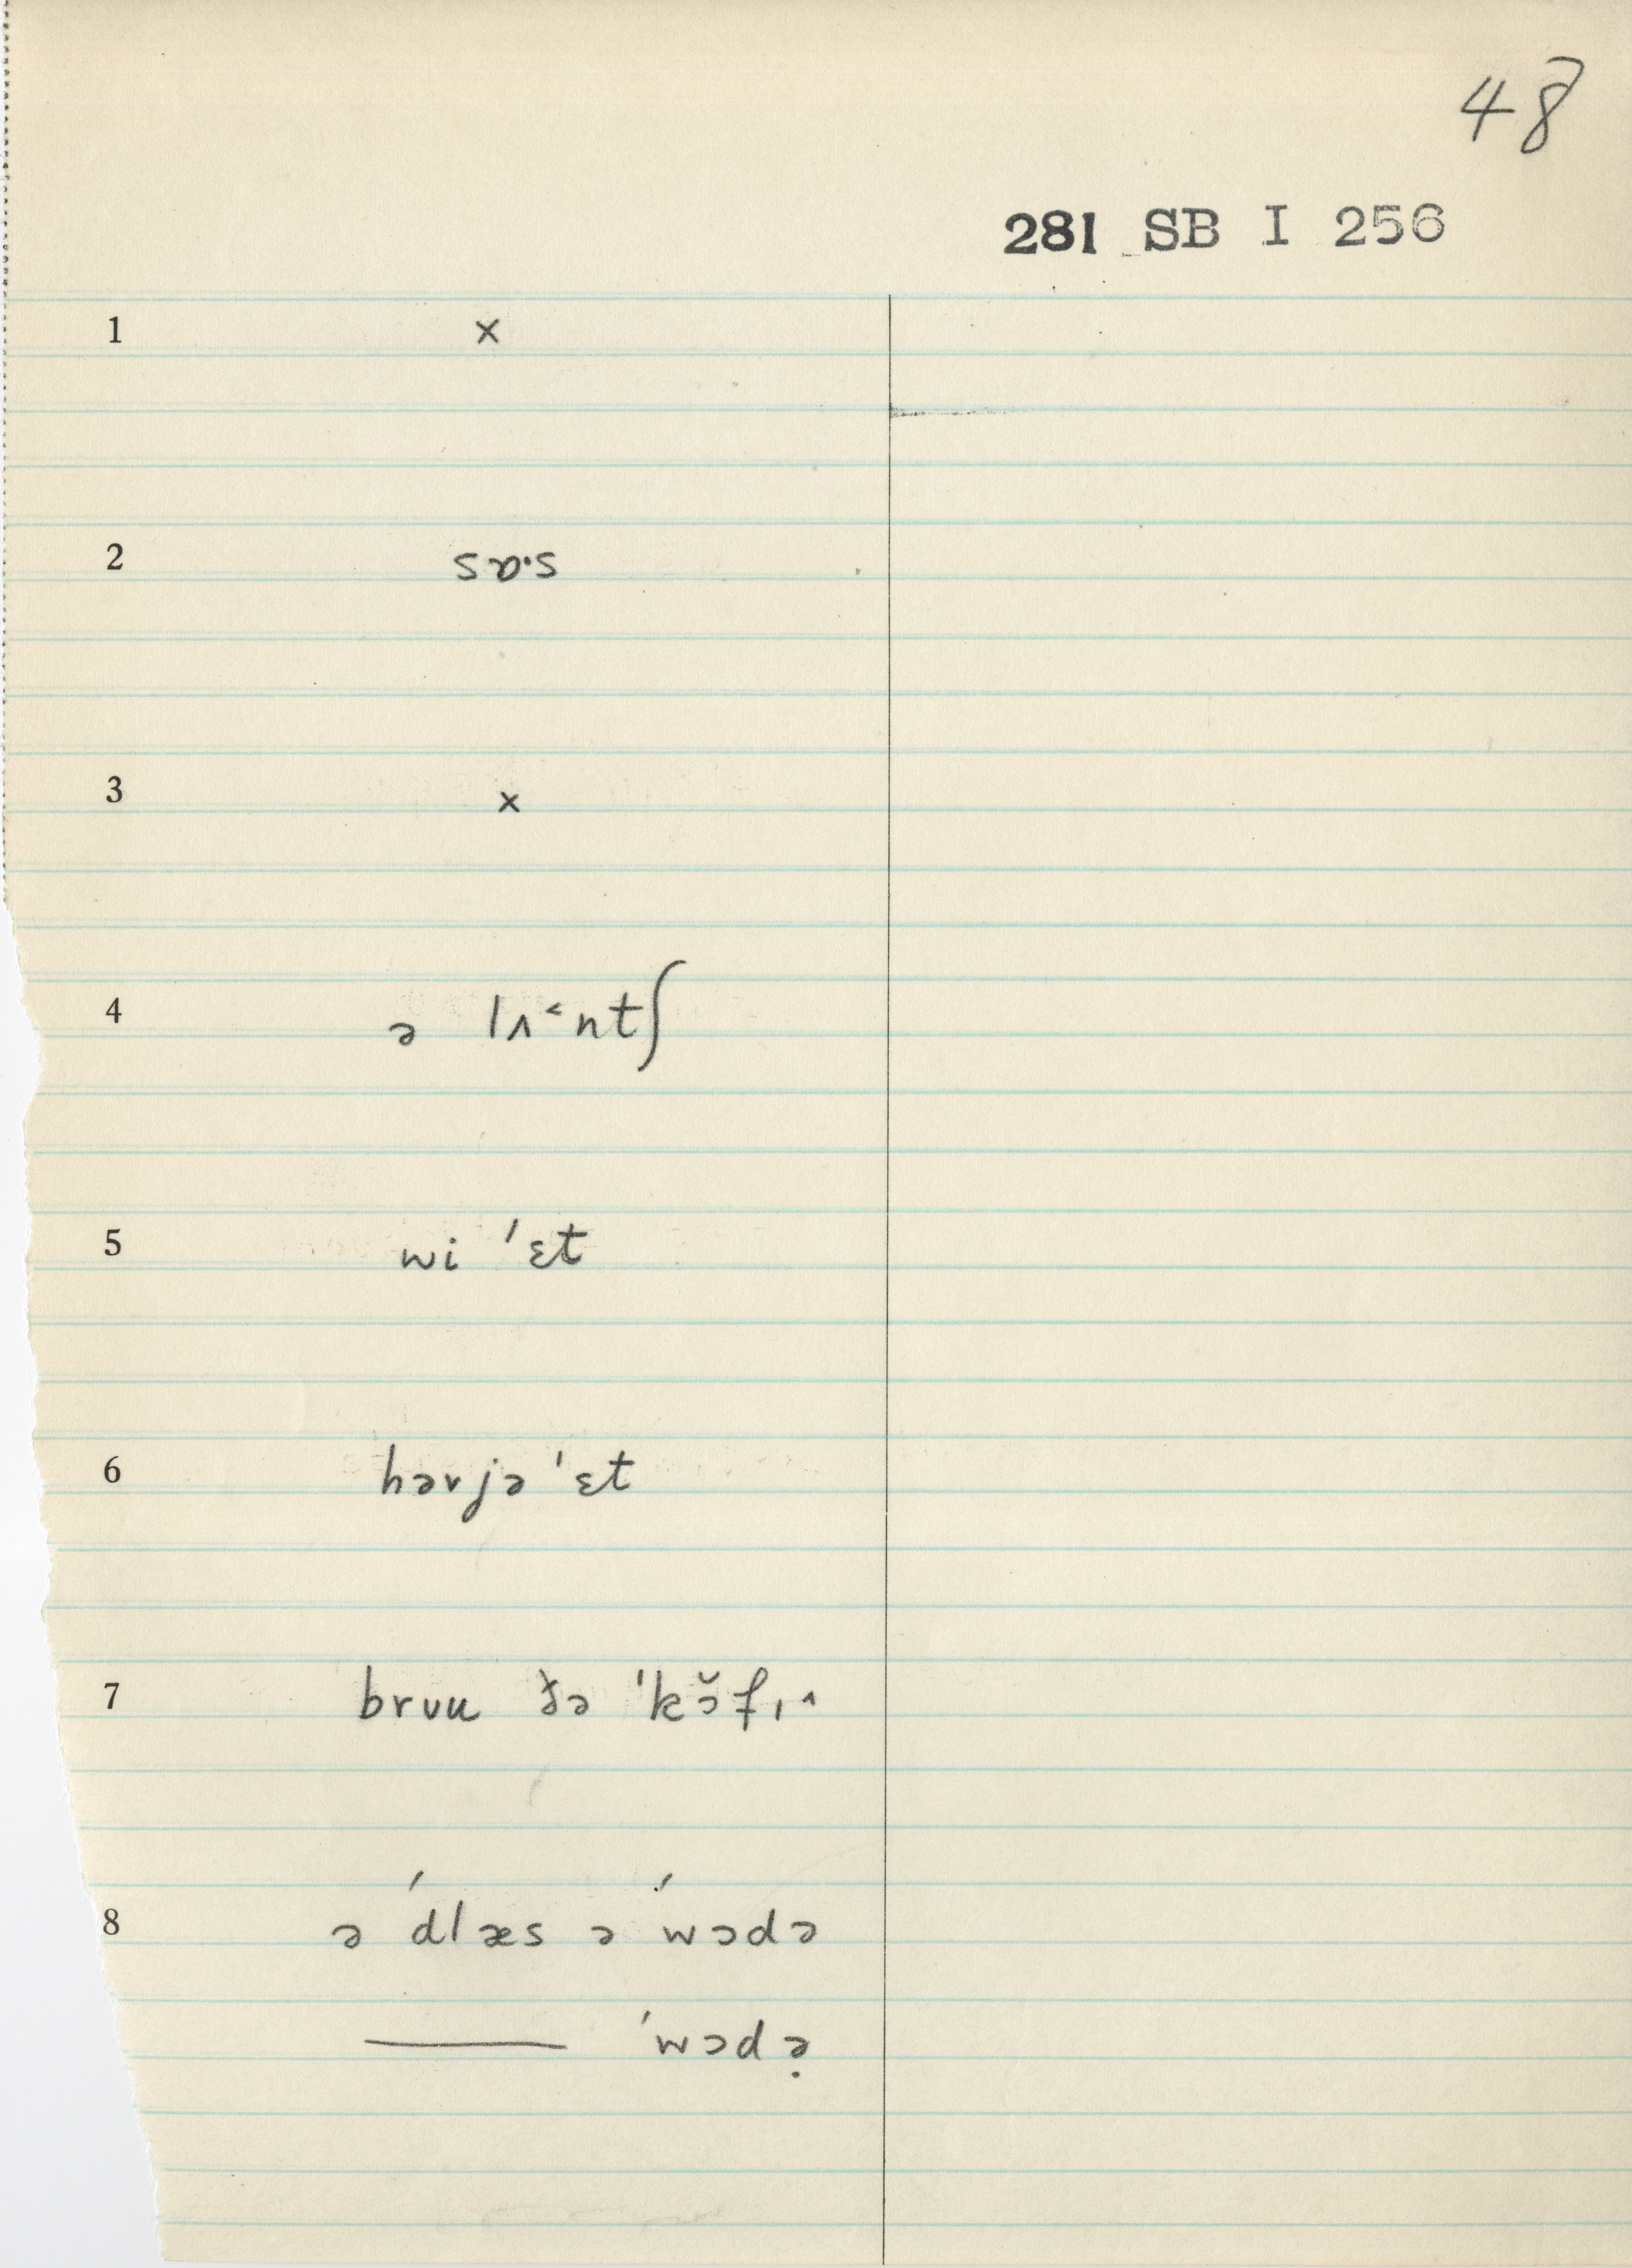 48
281 SB I 256
1 ×
2 sɒ·s
3 ×
4 ə lʌ˂ntʃ
5 wi 'ɛt
6 hərjə 'ɛt
7 brʊu ðə 'kɔ̆fɪ˄
8 ə 'dlæs ə 'wɔdə
—— 'wɔdə̣